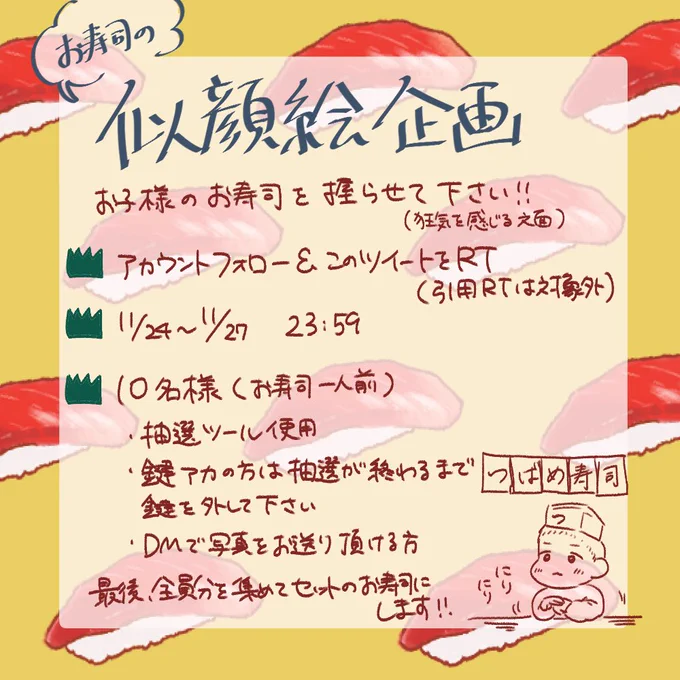 お寿司の
似顔絵企画
お子様のお寿司を握らせて下さい!!
(狂気を感じる文面)
アカウントフォロー&このツイートをRT
(引用RTは対象外)
11/24〜11/27 23:59
10名様(お寿司一人前)
・抽選ツール使用
・鍵アカの方は抽選が終わるまで
鍵を外して下さい
・DMで写真をお送り頂ける方
つばめ寿司
つ
にり
にり
最後、全員分を集めてセットのお寿司に
します!!